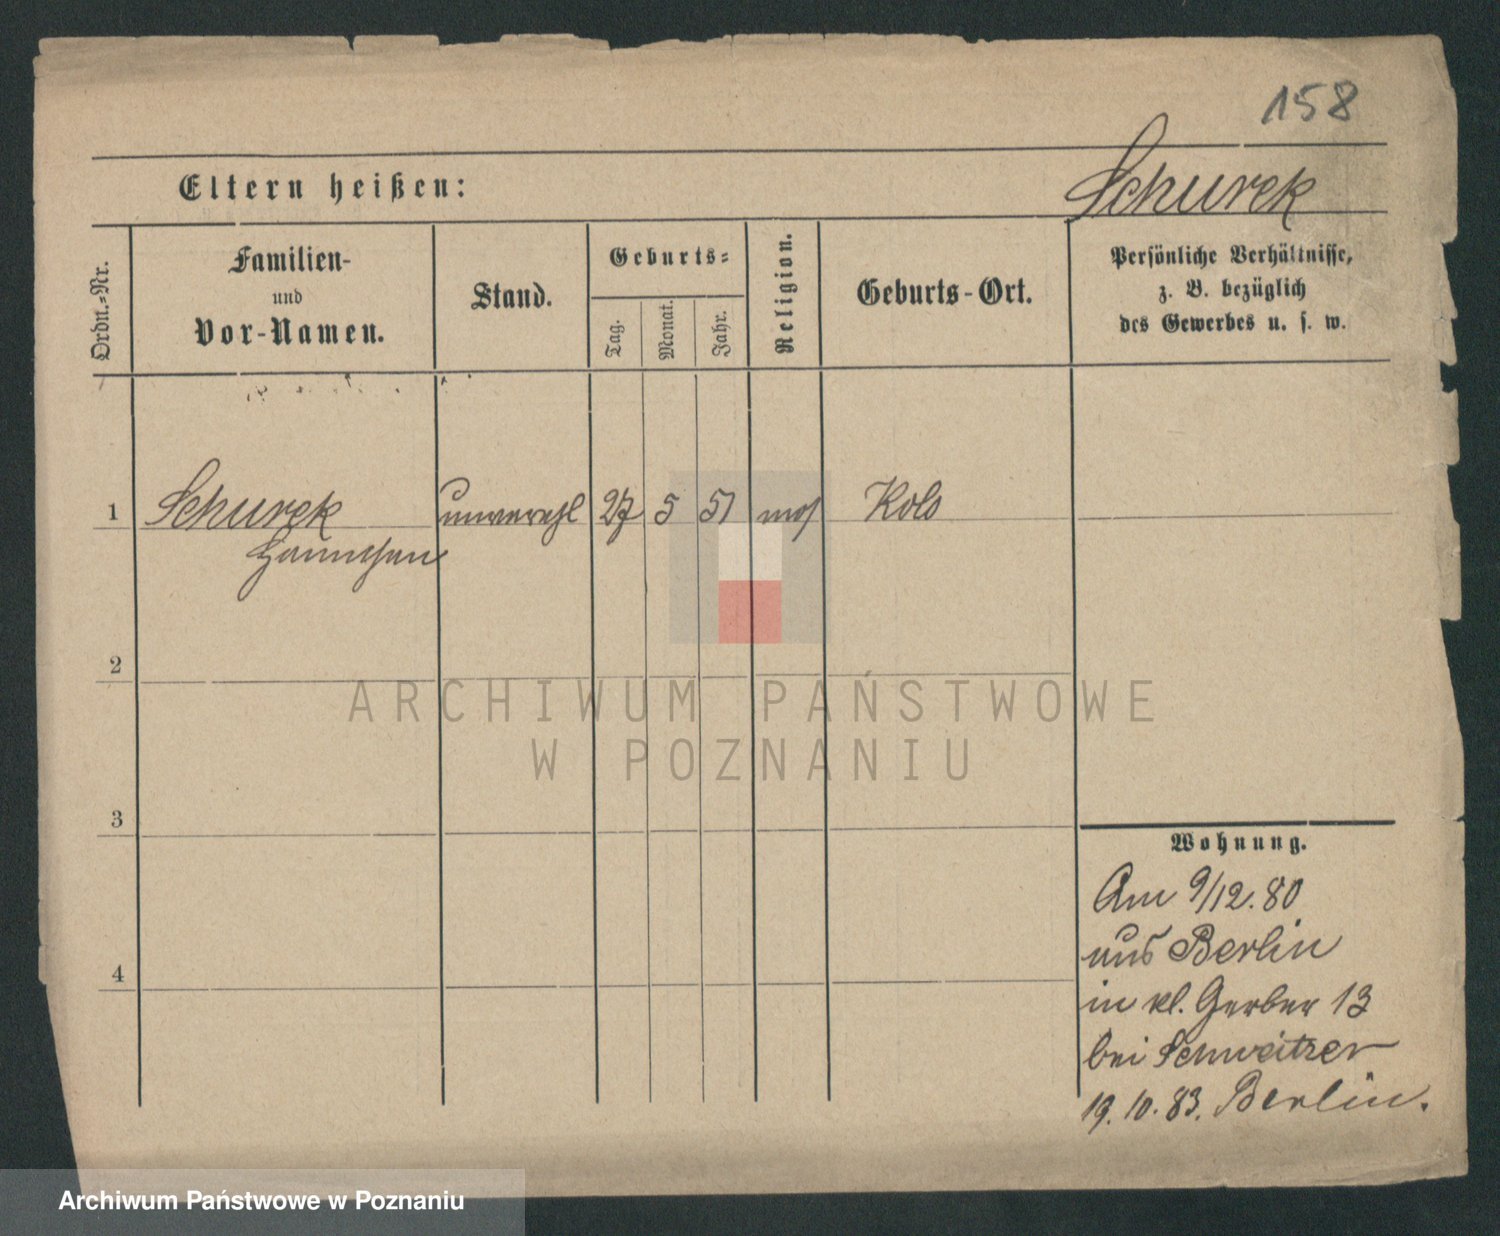 158
Eltern heißen:
Schurek
Ordn.=Nr.
Familien-
und
Vor-Namen.
Stand.
Geburts=
Tag.
Monat.
Jahr.
Religion.
Geburts-Ort.
Persönliche Verhältnisse,
z. B. bezüglich
des Gewerbes u. s. w.
1 Schurek unverehl 27 5 51 mos Kolo
Hannchen
2
ARCHIWUM PAŃSTWOWE
W POZNANIU
3
Wohnung.
Am 9/12.80
aus Berlin
in kl. Gerber 13
bei Schweitzer
19.10.83. Berlin.
4
Archiwum Państwowe w Poznaniu